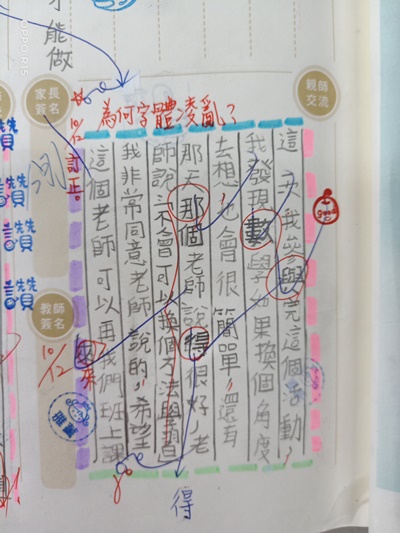 才能做
家長簽名
親師交流
10/12 訂正。
為何字體凌亂？
讚
讚
讚
讚
這次我參與完這個活動，
我發現數學如果換個角度
去想，也會很簡單，還有
那天那個老師說得很好，老
師說不會可以換個方法學習
我非常同意老師說的，希望
這個老師可以再來我們班上課
教師簽名
10/12
good
得